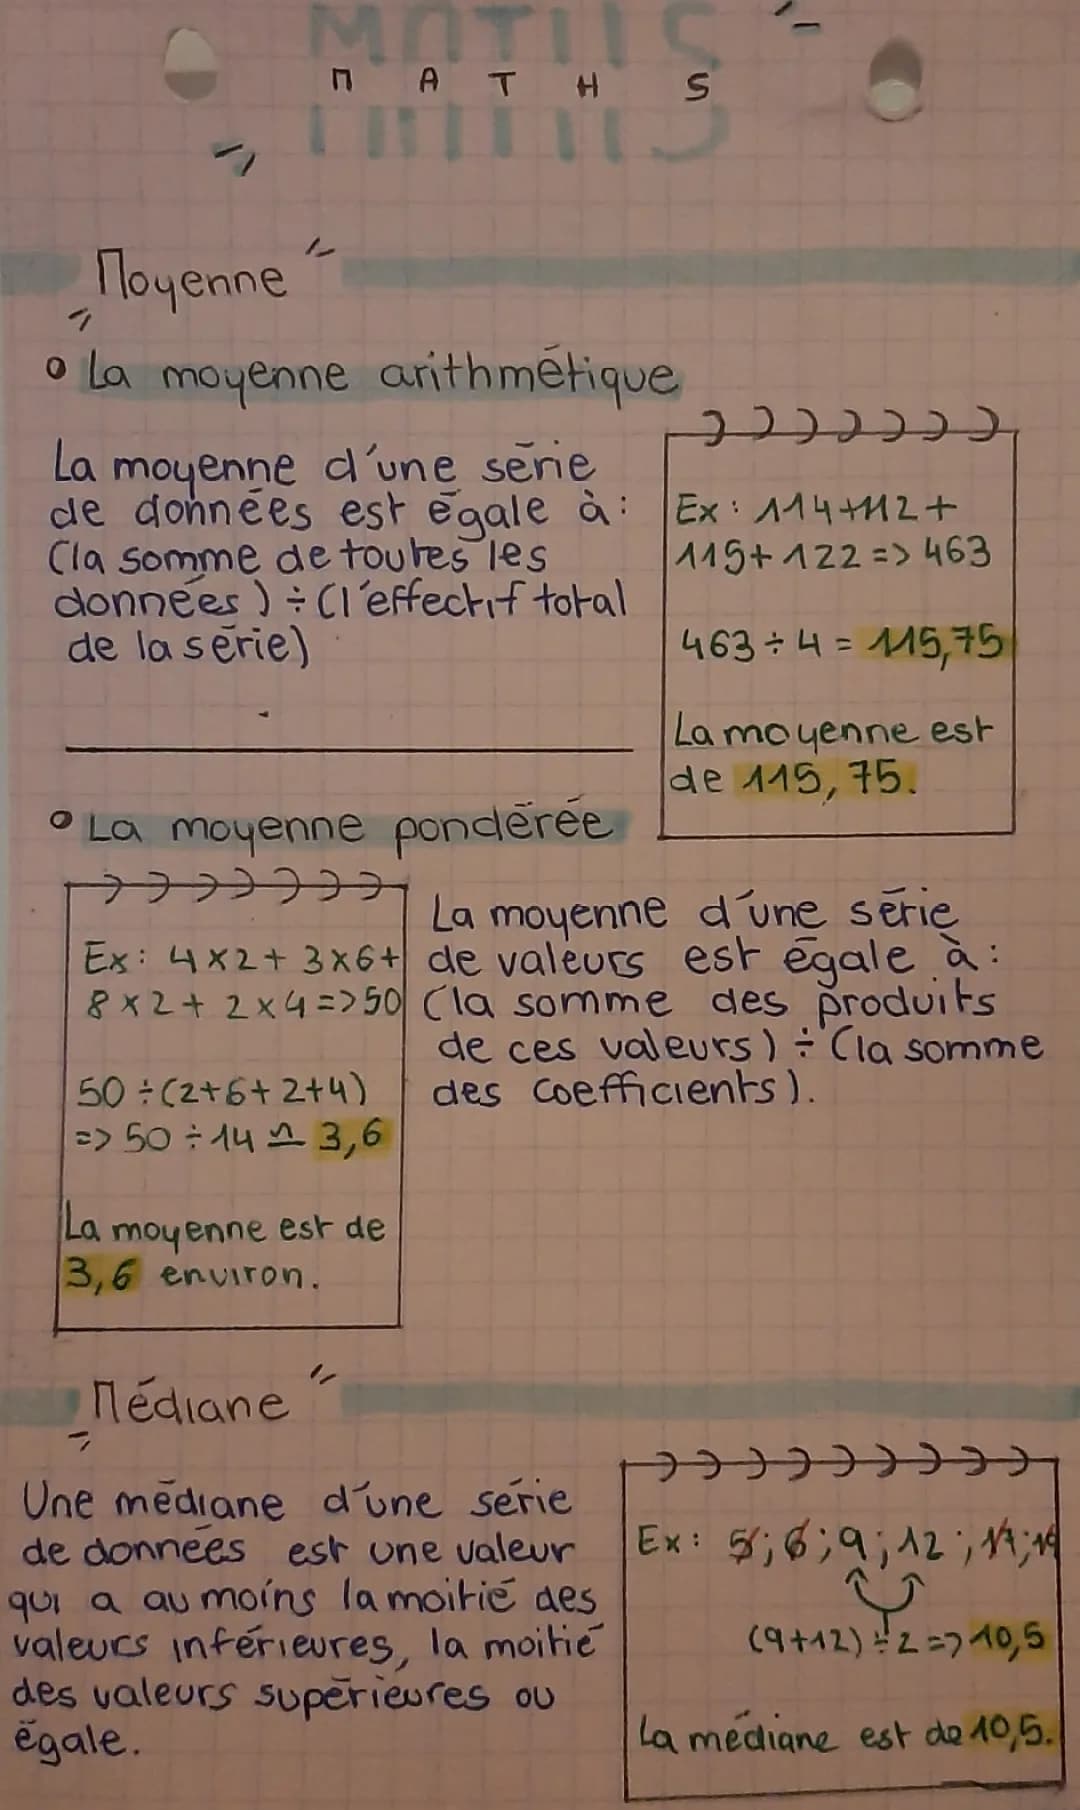 MATHS
Moyenne
La moyenne arithmétique
La moyenne d'une série
de données est égale à :
(la somme de toutes les
données) ÷ (l'effectif total
de la série)
Ex : 114+112+
115+122 => 463
463 ÷ 4 = 115,75
La moyenne est
de 115,75.
La moyenne pondérée
Ex : 4×2+3×6+
8×2+2×4=>50
50÷(2+6+2+4)
=> 50÷14 ≃ 3,6
La moyenne est de
3,6 environ.
La moyenne d'une série
de valeurs est égale à :
(la somme des produits
de ces valeurs) ÷ (la somme
des coefficients).
Médiane
Une médiane d'une série
de données est une valeur
qui a au moins la moitié des
valeurs inférieures, la moitié
des valeurs supérieures ou
égale.
Ex : 5; 6; 9; 12;
(9+12)÷2=>10,5
La médiane est de 10,5.